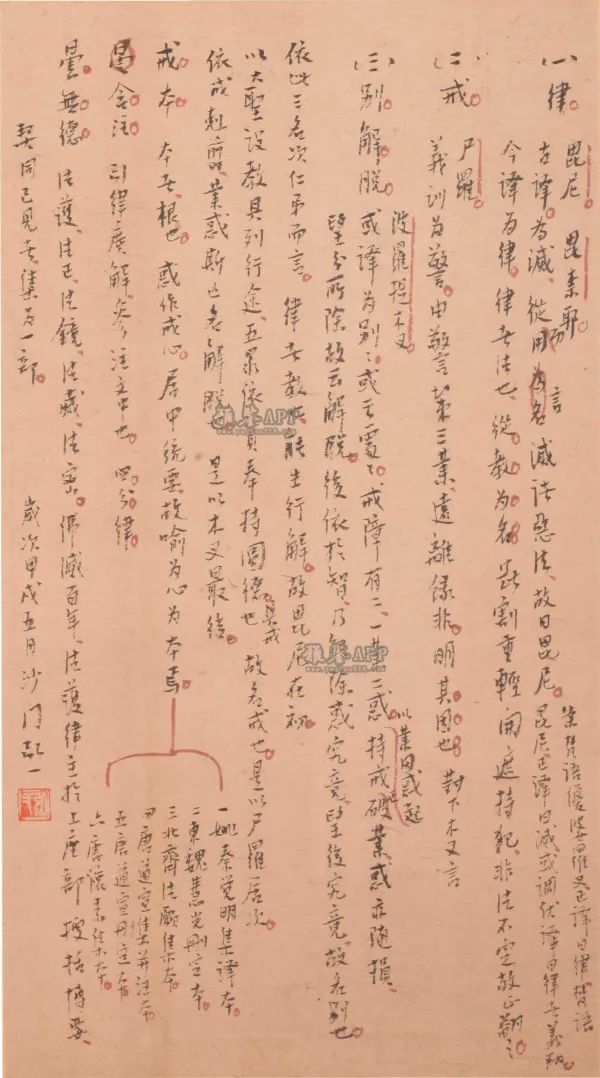 (一)律。毘尼。毘奈耶
古譯為滅、從用而言為名。滅諸惡法、故曰毘尼。
案梵語優婆羅叉正譯曰律梵語
毘尼正譯曰滅或調伏譯曰律者義翻
今譯為律。律者法也、從教為名。斷割重輕開遮持犯、非法不定故正翻之
(二)戒。尸羅
義訓為警。由警策三業、遠離緣非、明其因也。對下木叉言
(三)別解脫。波羅提木叉
或譯為別別或云處處。戒障有二、一業二惑以業因惑起持戒破業惑亦隨損、
望分所除故云解脫。後依於智、乃能除惑究竟。望後究竟、故名別也
依此三名次第而言。律者教也能生行解。故毘尼在初
以大聖設教具列行途、五眾依具奉持圓德具戒也故名戒也。是以尸羅居次。
依戒剋翦業惑斯亡名解脫。是以木叉最後
戒本本者根也或作戒心居中統要故喻為心為本焉
一姚秦覺明集譯本。
二東魏慧光刪定本
三北齊法願集本。
四唐道宣集并注本
五唐道宣刪定本
六唐懷素集本。
含注引律廣解、參注文中也。四分律
曇無德。法護、法正、法鏡、法藏、法密。佛滅百年、法護律主於上座部搜括博要、
契同己見者集為一部。歲次甲戌五月沙門弘一